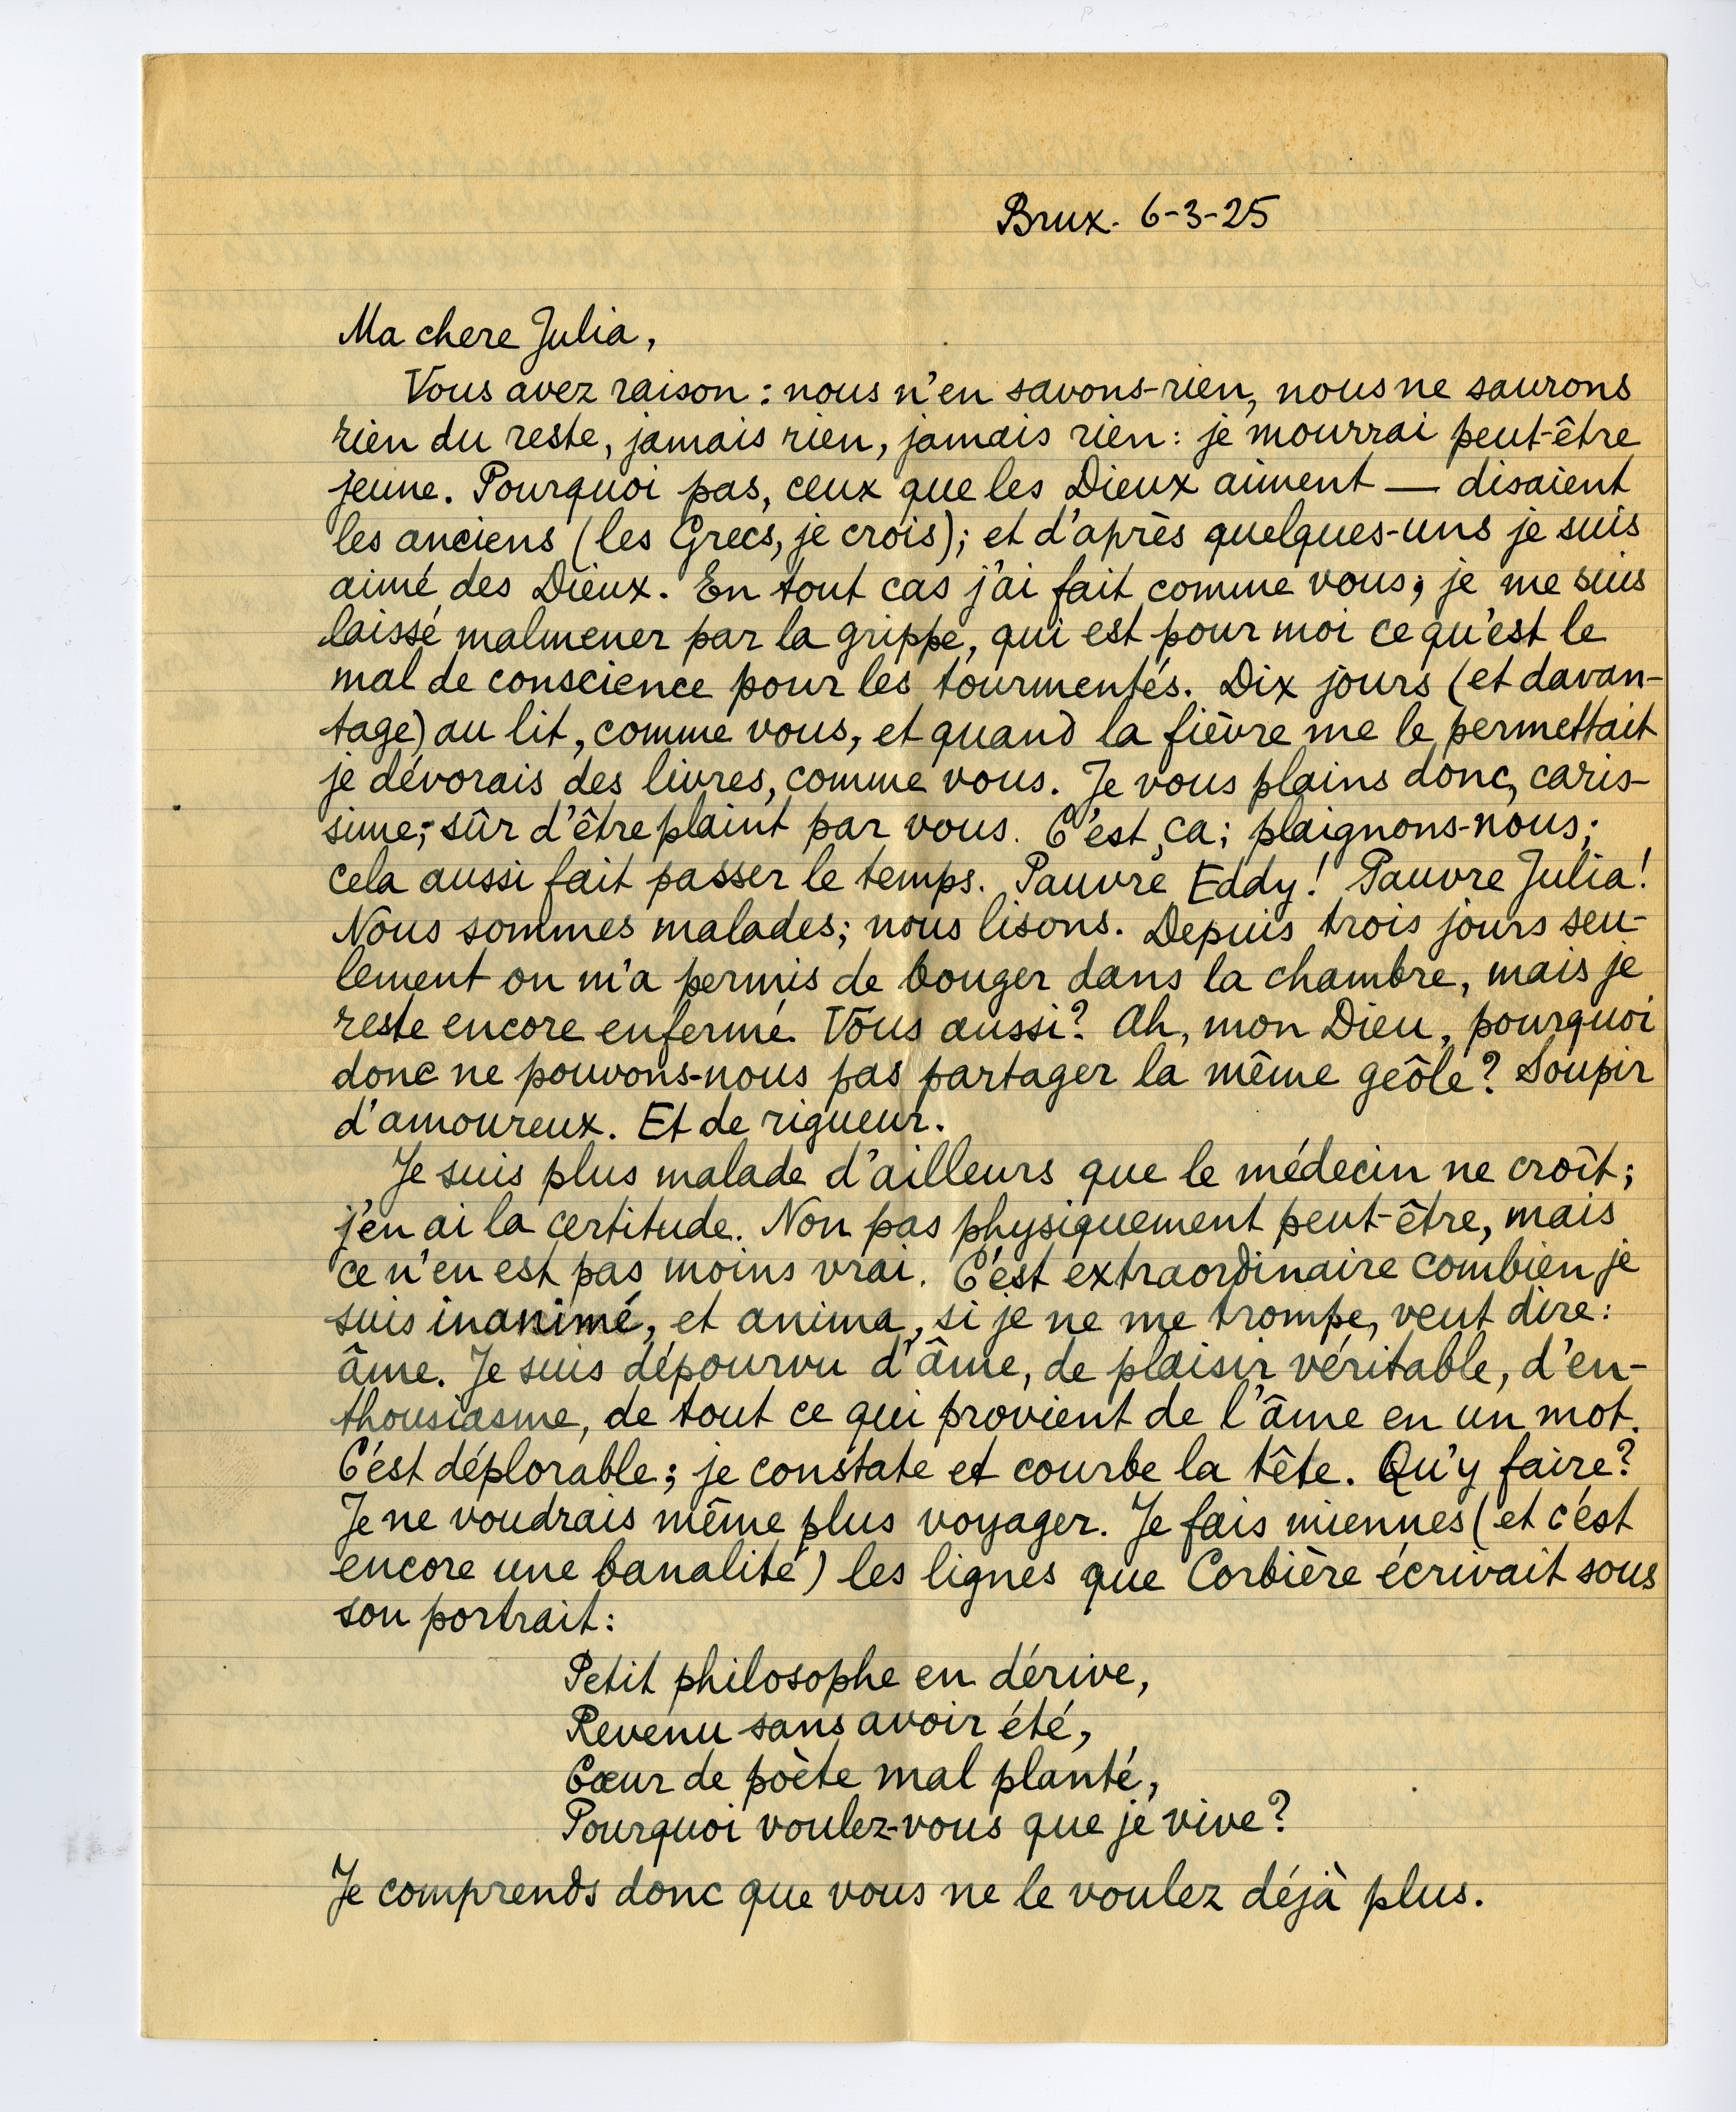 Brux. 6-3-25
Ma chere Julia,
Vous avez raison : nous n'en savons-rien, nous ne saurons
rien du reste, jamais rien, jamais rien : je mourrai peut-être
jeune. Pourquoi pas, ceux que les Dieux aiment — disaient
les anciens (les Grecs, je crois); et d'après quelques-uns je suis
aimé des Dieux. En tout cas j'ai fait comme vous; je me suis
laissé malmener par la grippe, qui est pour moi ce qu'est le
mal de conscience pour les tourmentés. Dix jours (et davan-
tage) au lit, comme vous, et quand la fièvre me le permettait
je dévorais des livres, comme vous. Je vous plains donc, caris-
sime; sûr d'être plaint par vous. C'est ça; plaignons-nous;
cela aussi fait passer le temps. Pauvre Eddy! Pauvre Julia!
Nous sommes malades; nous lisons. Depuis trois jours seu-
lement on m'a permis de bouger dans la chambre, mais je
reste encore enfermé. Vous aussi? Ah, mon Dieu, pourquoi
donc ne pouvons-nous pas partager la même geôle? Soupir
d'amoureux. Et de rigueur.
Je suis plus malade d'ailleurs que le médecin ne croît;
j'en ai la certitude. Non pas physiquement peut-être, mais
ce n'en est pas moins vrai. C'est extraordinaire combien je
suis inanimé, et anima, si je ne me trompe, veut dire :
âme. Je suis dépourvu d'âme, de plaisir véritable, d'en-
thousiasme, de tout ce qui provient de l'âme en un mot.
C'est déplorable; je constate et courbe la tête. Qu'y faire?
Je ne voudrais même plus voyager. Je fais miennes (et c'est
encore une banalité) les lignes que Corbière écrivait sous
son portrait :
Petit philosophe en dérive,
Revenu sans avoir été,
Cœur de poète mal planté,
Pourquoi voulez-vous que je vive?
Je comprends donc que vous ne le voulez déjà plus.